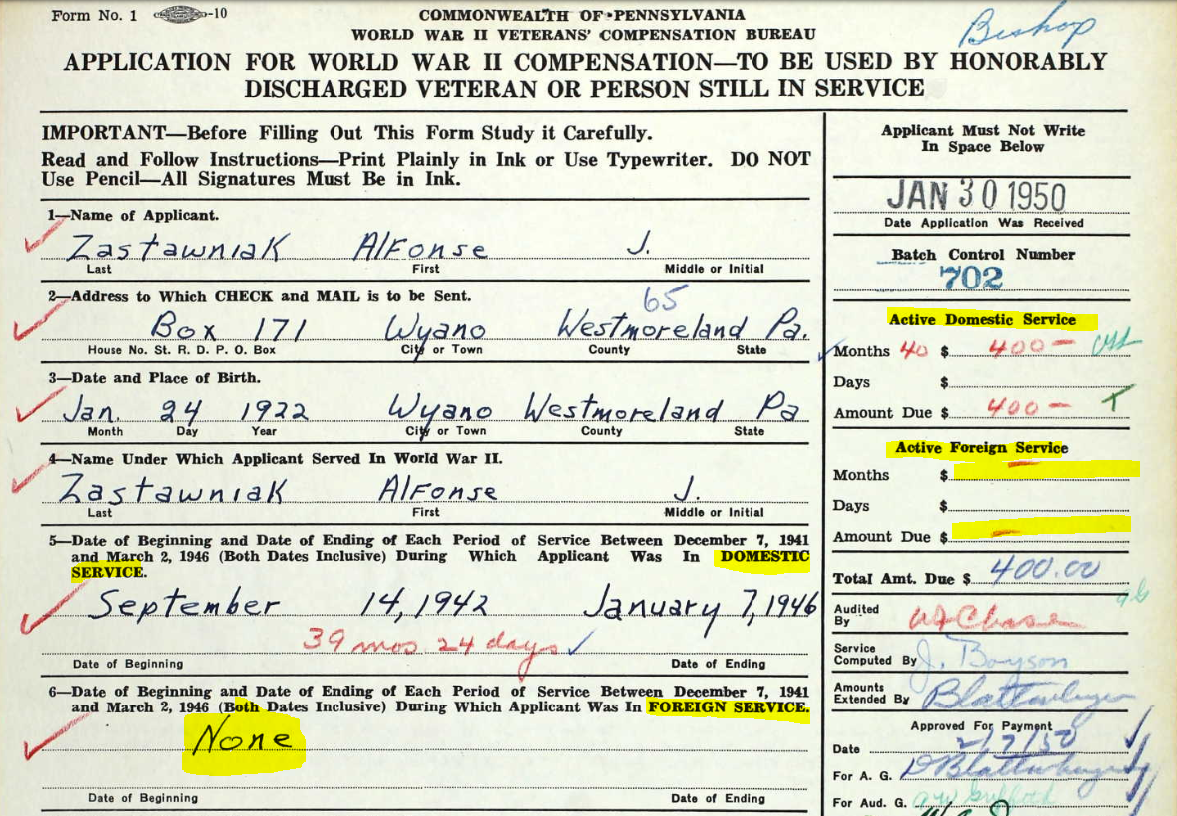 Form No. 1 -10
COMMONWEALTH OF PENNSYLVANIA
WORLD WAR II VETERANS' COMPENSATION BUREAU
Bishop
APPLICATION FOR WORLD WAR II COMPENSATION—TO BE USED BY HONORABLY
DISCHARGED VETERAN OR PERSON STILL IN SERVICE
IMPORTANT—Before Filling Out This Form Study it Carefully.
Read and Follow Instructions—Print Plainly in Ink or Use Typewriter. DO NOT
Use Pencil—All Signatures Must Be in Ink.
1—Name of Applicant.
Zastawniak Alfonse J.
Last First Middle or Initial
2—Address to Which CHECK and MAIL is to be Sent.
65
Box 171 Wyano Westmoreland Pa.
House No. St. R. D. P. O. Box City or Town County State
3—Date and Place of Birth.
Jan. 24 1922 Wyano Westmoreland Pa
Month Day Year City or Town County State
4—Name Under Which Applicant Served In World War II.
Zastawniak Alfonse J.
Last First Middle or Initial
5—Date of Beginning and Date of Ending of Each Period of Service Between December 7, 1941
and March 2, 1946 (Both Dates Inclusive) During Which Applicant Was In DOMESTIC
SERVICE.
September 14, 1942 January 7, 1946
39 mos 24 days
Date of Beginning Date of Ending
6—Date of Beginning and Date of Ending of Each Period of Service Between December 7, 1941
and March 2, 1946 (Both Dates Inclusive) During Which Applicant Was In FOREIGN SERVICE.
None
Date of Beginning Date of Ending
Applicant Must Not Write
In Space Below
JAN 30 1950
Date Application Was Received
Batch Control Number
702
Active Domestic Service
Months 40 $ 400—
Days $
Amount Due $ 400—
Active Foreign Service
Months $ —
Days $
Amount Due $ —
Total Amt. Due $ 400.00
Audited
By
Service
Computed By J. Boyson
Amounts
Extended By
Approved For Payment
Date 2/7/50
For A. G.
For Aud. G.